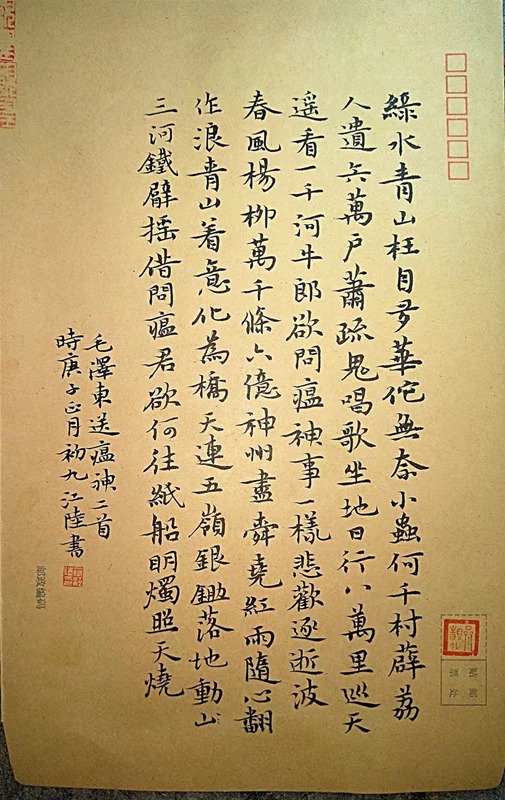 綠水青山枉自多華佗無奈小蟲何千村薜荔
人遺矢萬戶蕭疏鬼唱歌坐地日行八萬里巡天
遥看一千河牛郎欲問瘟神事一樣悲歡逐逝波
春風楊柳萬千條六億神州盡舜堯紅雨隨心翻
作浪青山着意化為橋天連五嶺銀鋤落地動山
三河鐵辟摇借問瘟君欲何往紙船明燭照天燒
毛澤東送瘟神二首
時庚子正月初九江陸書